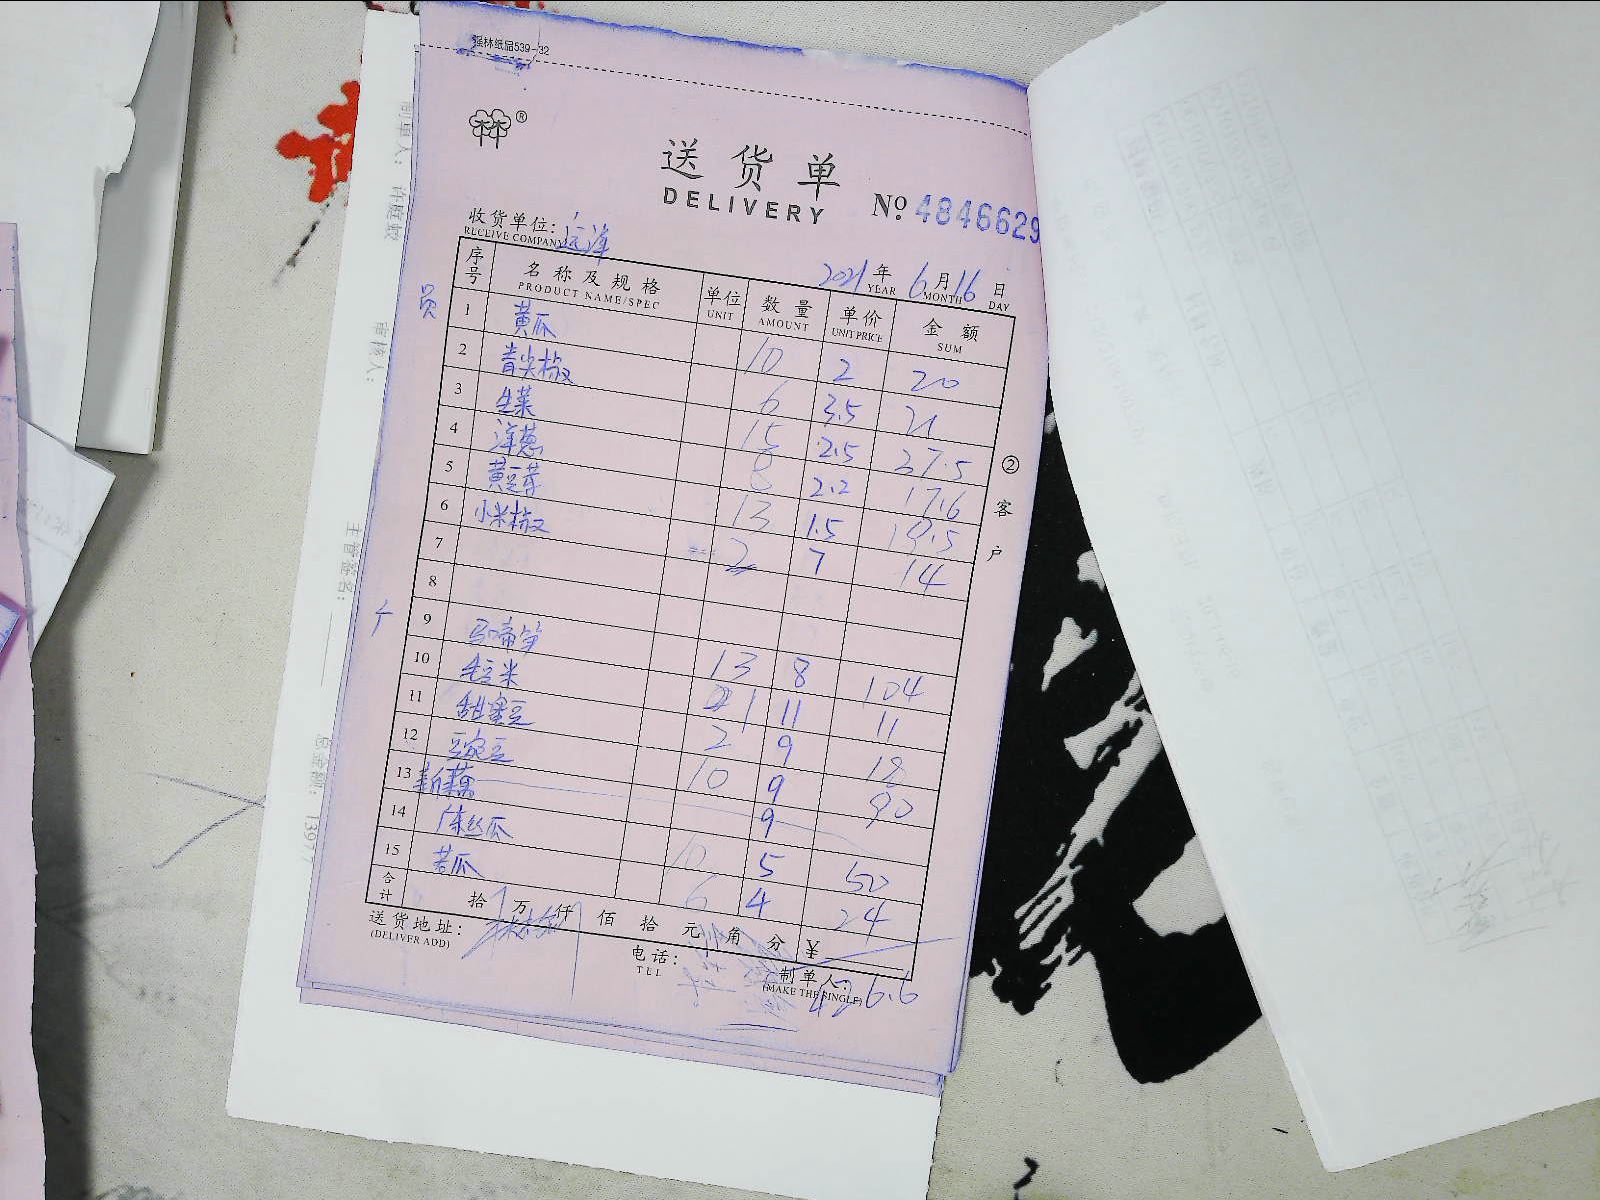 强林纸品539-32
林林®
送货单
DELIVERY
No. 4846629
收货单位: 远洋
RECEIVE COMPANY
2021年 6月16日
YEAR MONTH DAY
序号 名称及规格 单位 数量 单价 金额
PRODUCT NAME/SPEC UNIT AMOUNT UNIT PRICE SUM
1 黄瓜 10 2 20
2 青尖椒 6 3.5 21
3 生菜 15 2.5 37.5
4 洋葱 8 2.2 17.6
5 黄豆芽 13 1.5 19.5
6 小米椒 2 7 14
7
8
9 马蹄笋 13 8 104
10 毛豆米 1 11 11
11 甜蜜豆 2 9 18
12 豆宛豆 10 9 90
13 新藕 9
14 丝瓜 10 5 50
15 苦瓜 6 4 24
合计 拾 万 仟 佰 拾 元 角 分 ¥
送货地址:
(DELIVER ADD)
电话:
TEL
制单人:
(MAKE THE SINGLE)
426.6
②客户
员
制单人: 许庭蛟
审核人:
主管签名:
总金额: 1397